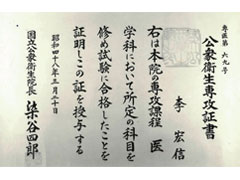 専医第六九号
公衆衛生専攻証書
李宏信
右は本院の専攻課程医
学科において所定の科目を
修め試験に合格したことを
証明しこの証を授与する
昭和四十八年三月二十日
国立公衆衛生院長 染谷四郎